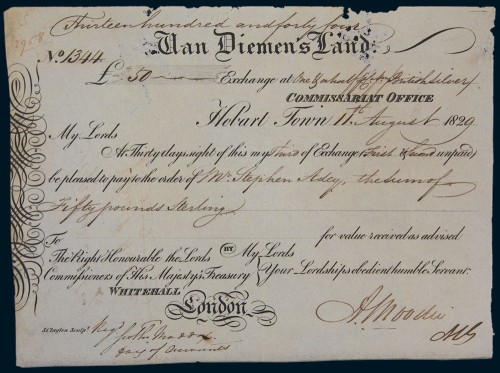 Thirteen hundred and forty four
2968
Van Diemen's Land
No. 1344
£ 50 Exchange at One & a half pCt British Silver
COMMISSARIAT OFFICE
Hobart Town 11th August 1829
My Lords
At Thirty days sight of this my Third of Exchange (First & Second unpaid)
be pleased to pay to the order of Mr. Stephen Adey, the sum of
Fifty pounds Sterling
for value received as advised
To
The Right Honourable the Lords BY My Lords
Commissioners of His Majesty's Treasury Your Lordships obedient humble Servant:
WHITEHALL
London
A Moodie
Regd. Jno. Maddox
of Accounts